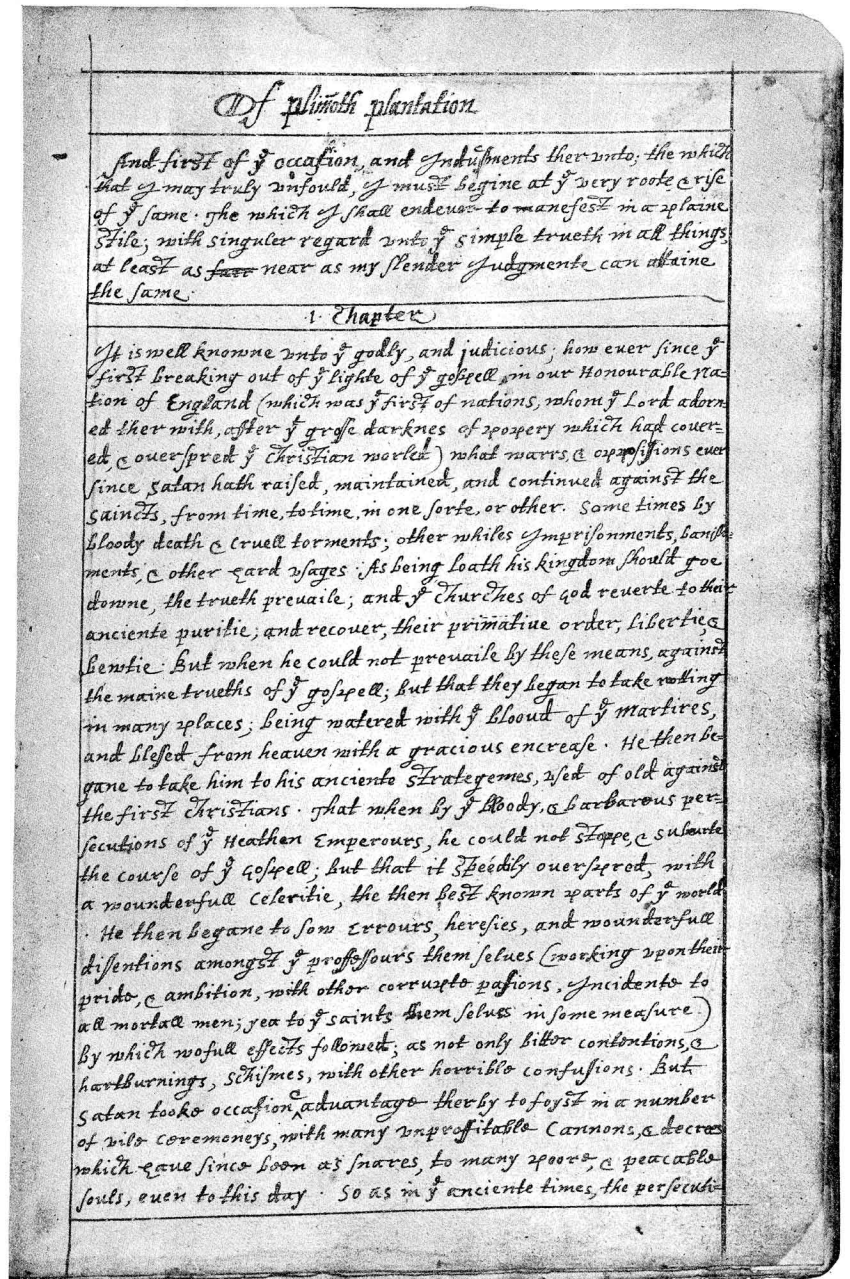 Of plim̃oth plantation
And first of yͤ occasion, and Indusments ther vnto; the which
that I may truly vnfould, I must begine at yͤ very roote & rise
of yͤ same. The which I shall endever to manefest in a plaine
stile; with singuler regard vnto yͤ simple trueth in all things,
at least as farr near as my slender Judgmente can attaine
the same.
.1. Chapter
It is well knowne vnto yͤ godly, and judicious; how ever since yͤ
first breaking out of yͤ lighte of yͤ gospell, in our Honourable Na=
tion of England (which was yͤ first of nations, whom yͤ Lord adorn=
ed ther with, affter yͤ grosse darknes of popery which had cover=
ed & overspred yͤ christian worled) what warrs, & oppossisions ever
since Satan hath raised, maintained, and continued against the
Saincts, from time, to time, in one sorte, or other. Some times by
bloody death & cruell torments; other whiles Imprisonments, banish=
ments, & other hard vsages. As being loath his kingdom should goe
downe, the trueth prevaile; and yͤ Churches of God reverte to their
anciente puritie; and recover, their primative order, libertie, &
bewtie. But when he could not prevaile by these means, against
the maine trueths of yͤ gospell; but that they began to take rotting
in many places; being watered with yͤ bloud of yͤ Martires,
and blessed from heaven with a gracious encrease. He then be=
gane to take him to his anciente strategemes, vsed of old against
the first Christians. That when by yͤ bloody, & barbarous per=
secutions of yͤ Heathen Emperours, he could not stoppe, & subuerte
the course of yͤ Gospell; but that it speedily overspred, with
a wounderfull Celeritie, the then best known parts of yͤ world
. He then begane to sow Errours, heresies, and wounderfull
dissentions amongst yͤ proffessours them selves (working vpon their
pride, & ambition, with other corrupte passions, Incidente to
all mortall men; yea to yͤ saints them selves in some measure.)
By which wofull effects followed; as not only bitter contentions, &
hartburnings, Schismes, with other horrible confusions. But
Satan tooke occasion & advantage therby to foyst in a number
of vile ceremoneys, with many vnproffitable Cannons, & decrees
which have since been as snares, to many poore, & peacable
souls, even to this day. So as in yͤ anciente times, the persecuti=